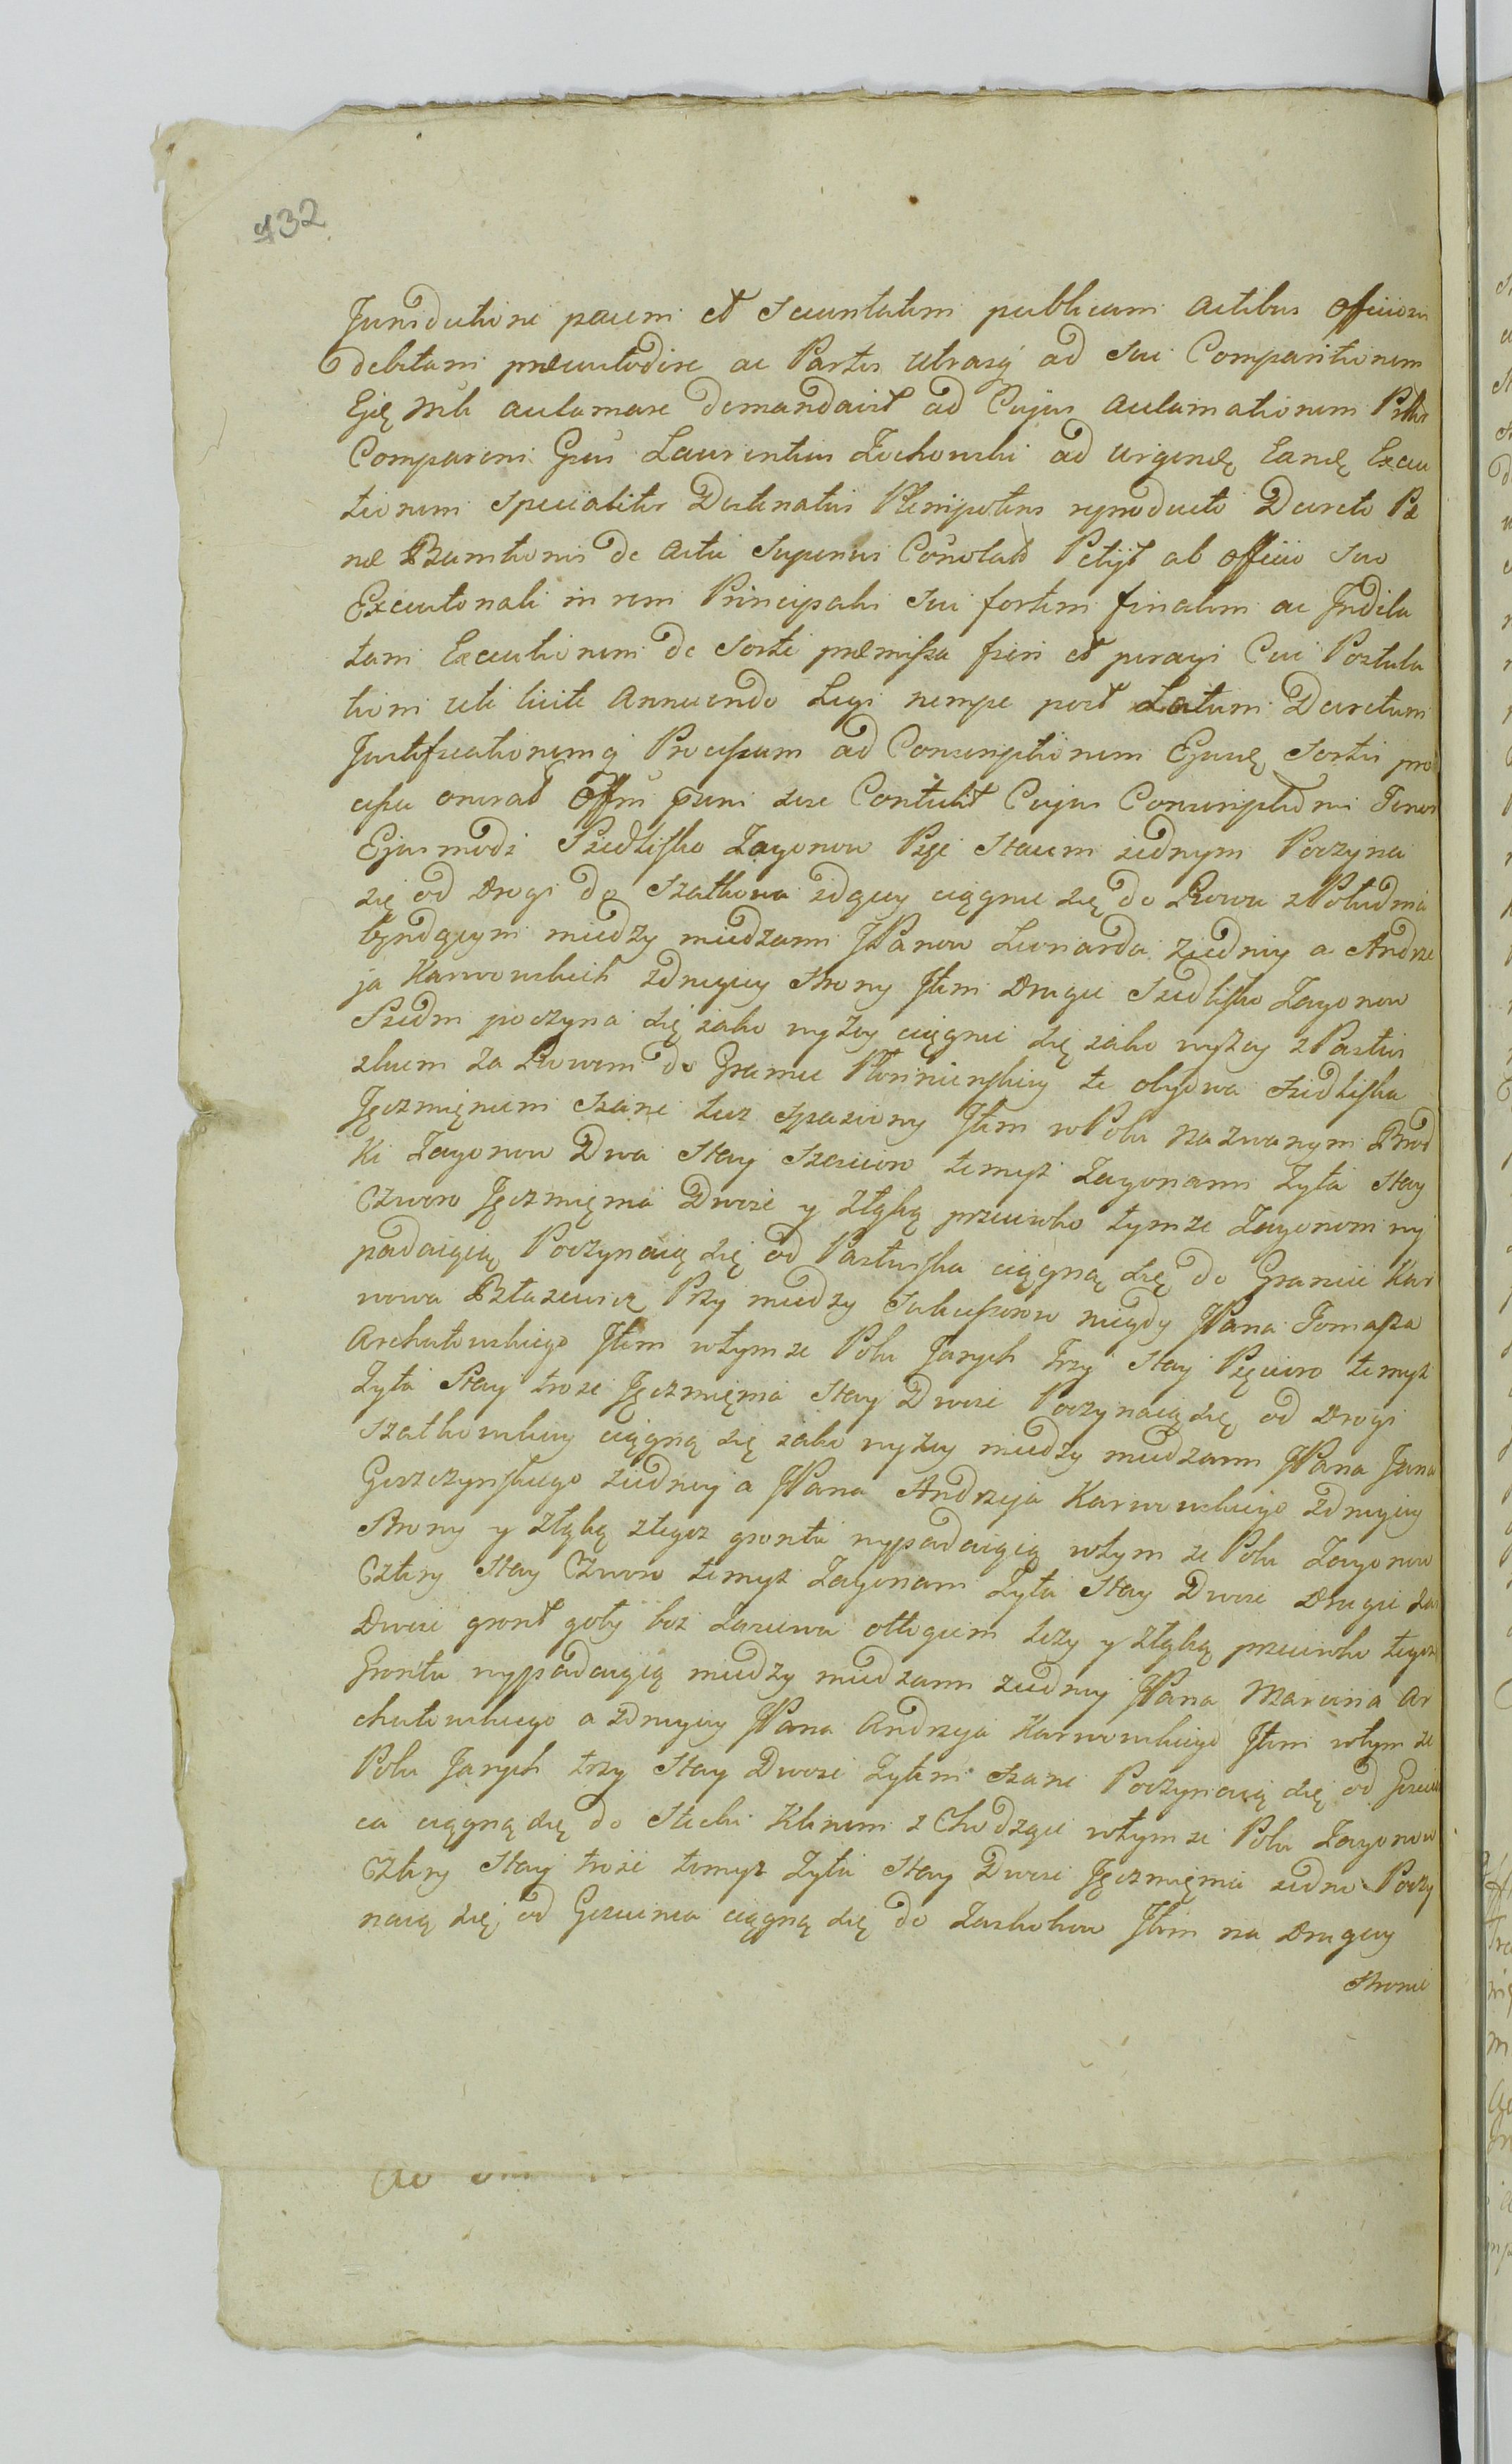 432
Jurisdictione pacem et Securitatem publicam Actibus Officiosis
debitam praecustodire ac Partes utrasq ad Sui Comparitionem
Ejję Mĩli acclamare demandavit ad Cujus acclamationem Pntbr
Comparens Gsus Laurentius Zochowski ad urgendę Eandę Execu
tionem Specialiter Destinatus Plenipotens reproducto Decreto Pæ
næ Bannitionis de Actu Superius Connotato Petijt ab officio suo
Executoriali in rem Principalis Sui fortem finalem ac Indila
tam Executionem de Sorte præmissa fieri et peragi Cui Postula
tioni uti licite Annuendo Legi nempe post Latum Decretum
Justificationemq Processum ad Conscriptionem Ejusdę Sortis pro
cessu onerat Offm pñm sese Contulit Cujus Conscriptionis Tenor
Ejusmodi Siedlisko Zagonow Pięć Staiem iednym Poczyna
się od Drogi do Szatkowa idącey ciągnie się do Rowu z Południa
będącym miedzy miedzami JPanow Leonarda ziedney a Andrze
ja Karwowskich zdrugiey Strony Item Drugie Siedlisko Zagonow
Siedm poczyna się iako wyzey ciągnie się iako wyzey z Pastwi
skiem za Rowem do Granicy Płoninskiey te obydwa siedliska
Jęczmięniem siane lecz spasiony Item w Polu nazwanym Brod
ki Zagonow Dwa Stay Sześcioro temyż Zagonami Zyta Stay
Czworo Jęczmięnia Dwoie y złąką przeciwko tymze Zagonom wy
padaiącą Poczynaią się od Pastwiska ciągną się do Granice Kar
wowa Błazewicz Przy miedzy Sukcessorow niegdy JPana Tomasza
Archutowskiego Item wtym ze Polu Jarych Trzy Stay Pięcioro temyż
Zyta Stay troie Jęczmięnia Stay Dwoie Poczynaią się od Drogi
Szatkowskiey ciągną się iako wyzey miedzy miedzami JPana Jana
Goszczynskiego ziedney a JPana Andrzeja Karwowskiego zdrugiey
Strony y złąką ztegoz grontu wypadaiącą wtym ze Polu Zagonow
Cztery Stay Czworo temyż Zagonami Zyta Stay Dwoie Drugie zas
Dwoie gront goły bez Zasiewu odłogiem lezy y złąką przeciwko tegoz
Grontu wypadaiącą miedzy miedzami ziedney JPana Marcina Ar
chutowskiego a zdrugiey JPana Andrzeja Karwowskiego Item wtym ze
Polu Jarych trzy Stay Dwoie Zytem siane Poczynaią się od Goscin
ca ciągną się do Stecki Klinem zChodzące wtym ze Polu Zagonow
Cztery Stay troie temyż Zyta Stay Dwoie Jęczmięnia iedno Poczy
naią się od Goscinca ciągną się do Zaskokow Item na Drugiey
Stronie